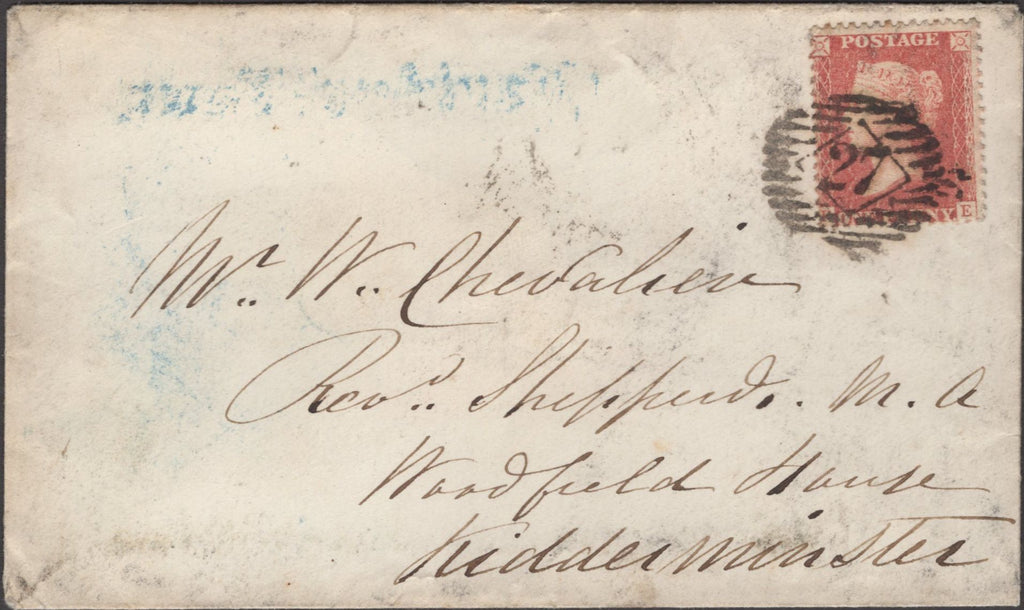 POSTAGE
27
E
Mr. W. Chevalier
Revd. Shepperd. M. A
Woodfield House
Kidderminster